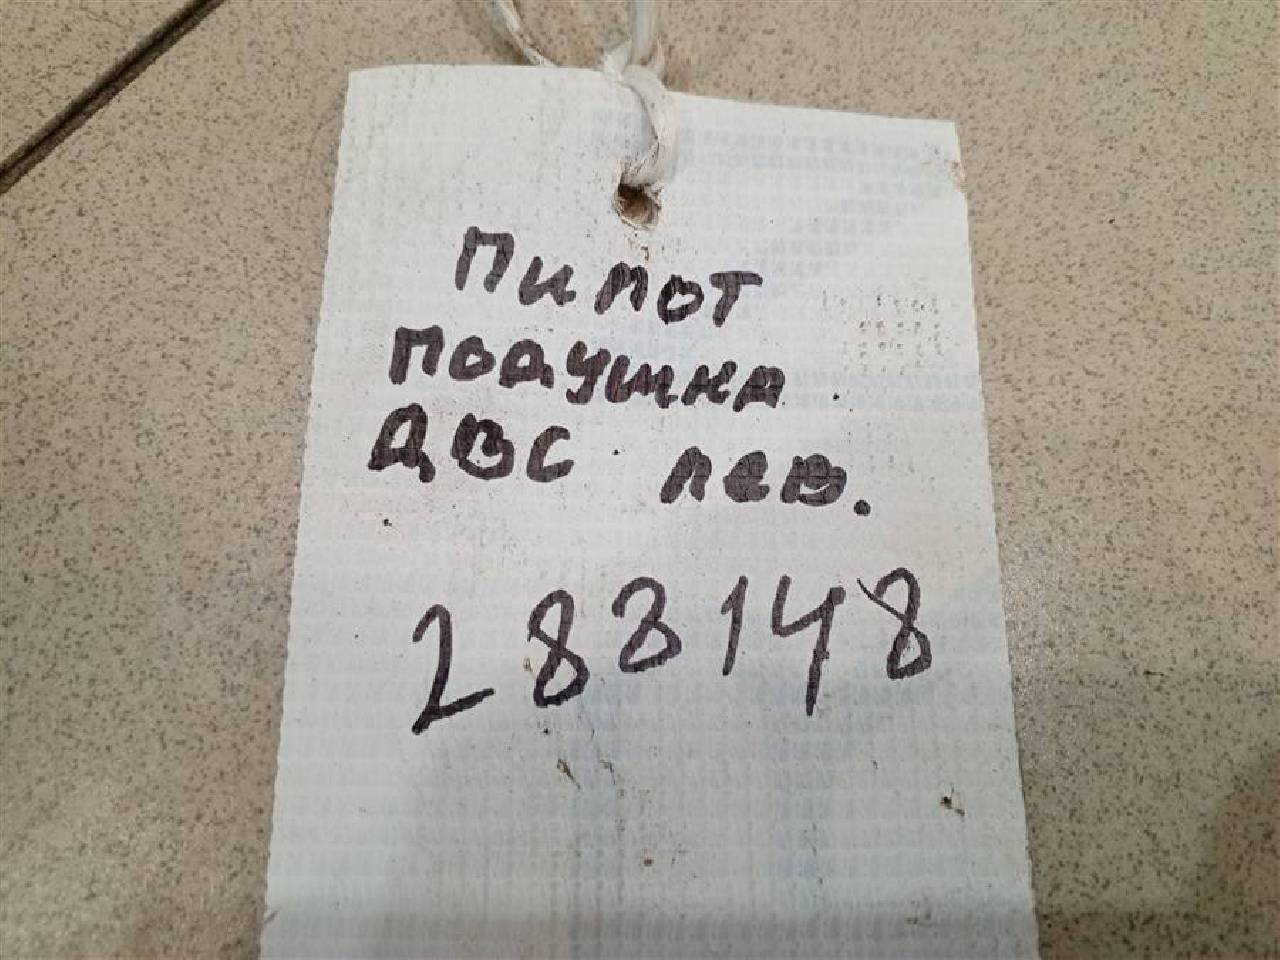 Пилот
подушка
ДВС лев.
283148